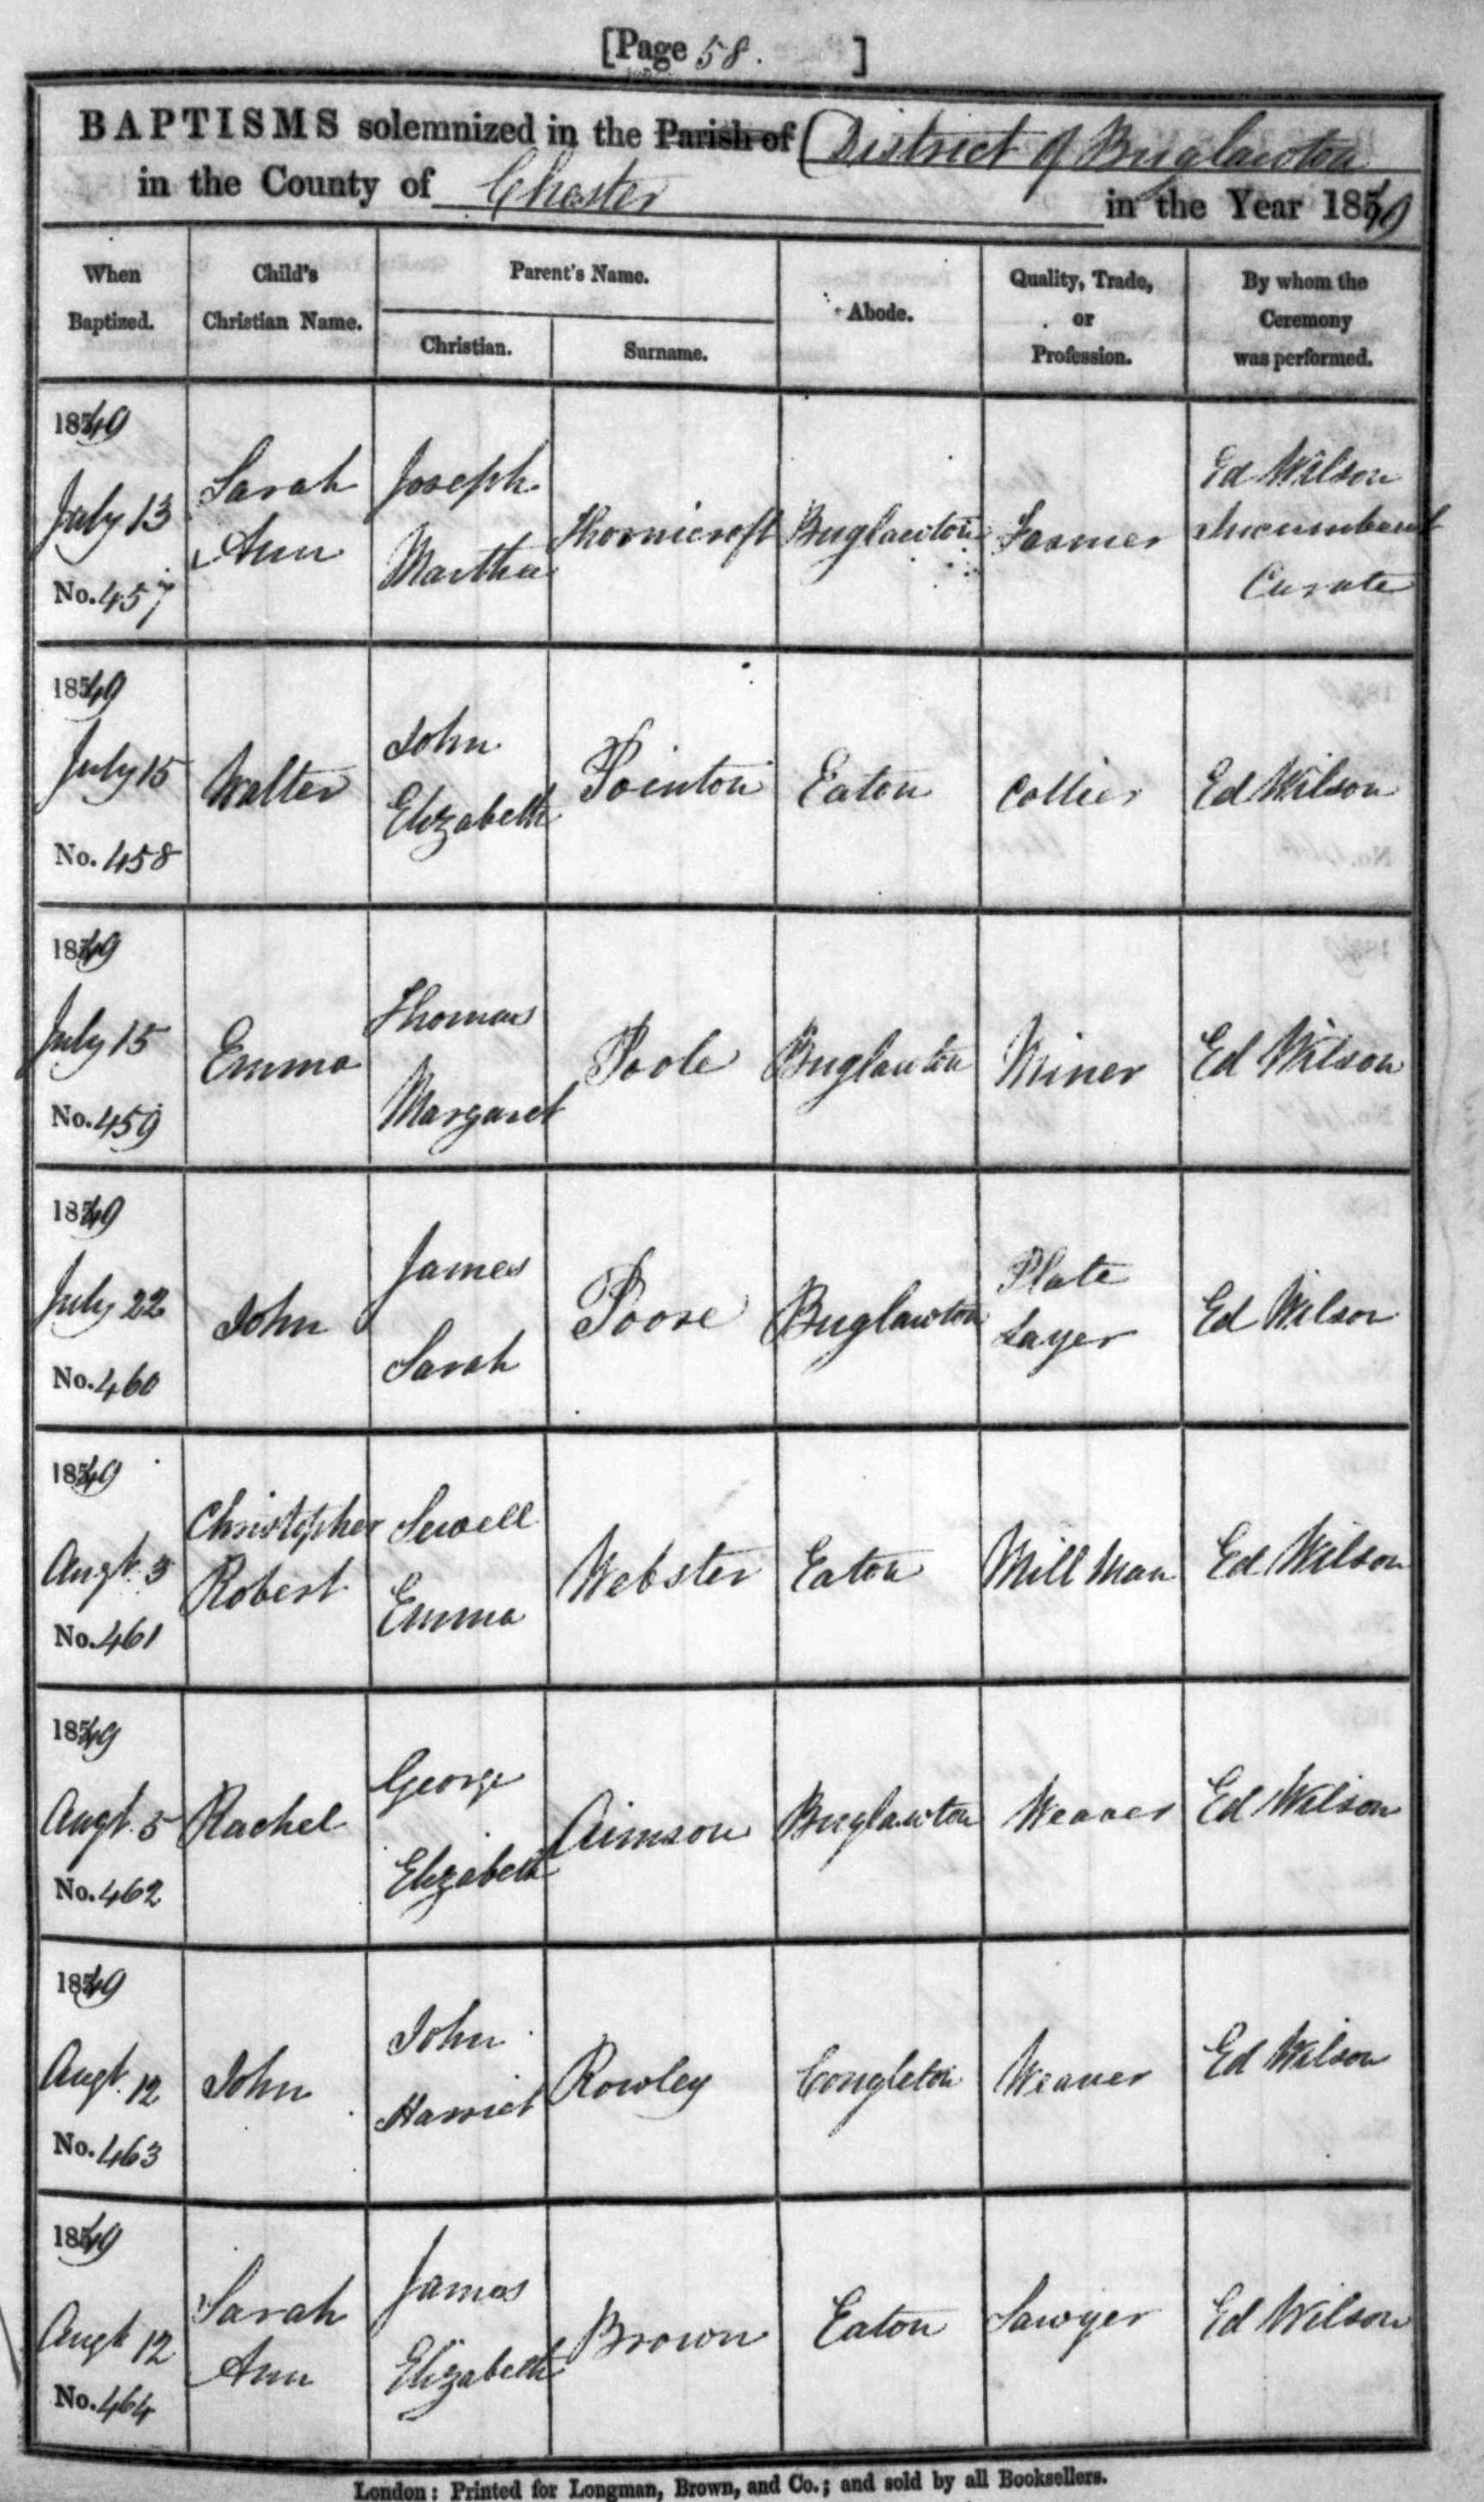 [Page 58. ]
BAPTISMS solemnized in the Parish of District of Buglawton
in the County of Chester in the Year 1849
When Baptized. Child's Christian Name. Parent's Name. Christian. Surname. Abode. Quality, Trade, or Profession. By whom the Ceremony was performed.
1849
July 13
No. 457
Sarah
Ann
Joseph
Martha
Thornicroft
Buglawton
Farmer
Ed Wilson
Incumbent
Curate
1849
July 15
No. 458
Walter
John
Elizabeth
Pointon
Eaton
Collier
Ed Wilson
1849
July 15
No. 459
Emma
Thomas
Margaret
Poole
Buglawton
Miner
Ed Wilson
1849
July 22
No. 460
John
James
Sarah
Poore
Buglawton
Plate
Layer
Ed Wilson
1849
Augt. 3
No. 461
Christopher
Robert
Sewell
Emma
Webster
Eaton
Mill Man
Ed Wilson
1849
Augt. 5
No. 462
Rachel
George
Elizabeth
Aimson
Buglawton
Weaver
Ed Wilson
1849
Augt. 12
No. 463
John
John
Harriet
Rowley
Congleton
Weaver
Ed Wilson
1849
Augt 12
No. 464
Sarah
Ann
James
Elizabeth
Brown
Eaton
Sawyer
Ed Wilson
London: Printed for Longman, Brown, and Co.; and sold by all Booksellers.